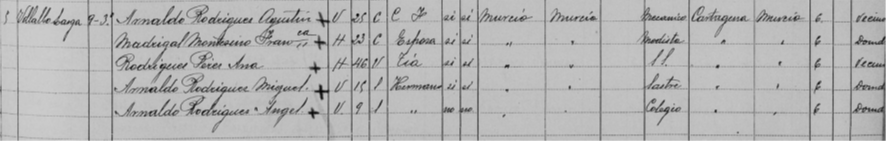 5 Villalto Larga 9-3º Arnaldo Rodrigues Agustin + V 25 C C F si si Murcia Murcia Mecanico Cartagena Murcia 6 Vecino
Madrigal Montesino Franca + H 23 C Esposa si si " " Modista " " 6 Domd
Rodrigues Peres Ana + H 46 V Tia si si " " S.L. " " 6 Vecino
Arnaldo Rodrigues Miguel + V 15 S Hermano si si " " Sastre " " 6 Domd
Arnaldo Rodrigues Angel + V 9 S " no no " " Colegio " " 6 Domd